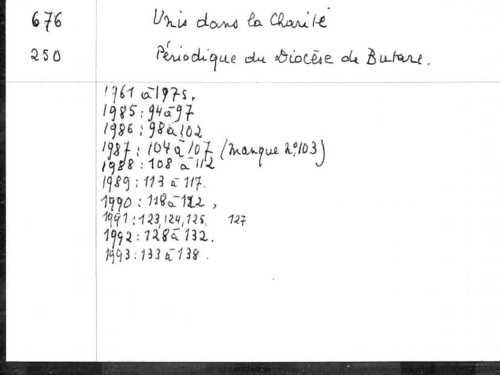 676 Unis dans la Charité
250 Périodique du Diocèse de Butare.
1961 à 1975.
1985 : 94 à 97
1986 : 98 à 102
1987 : 104 à 107 (manque n° 103)
1988 : 108 à 112
1989 : 113 à 117.
1990 : 118 à 122,
1991 : 123, 124, 125, 127
1992 : 128 à 132.
1993 : 133 à 138.